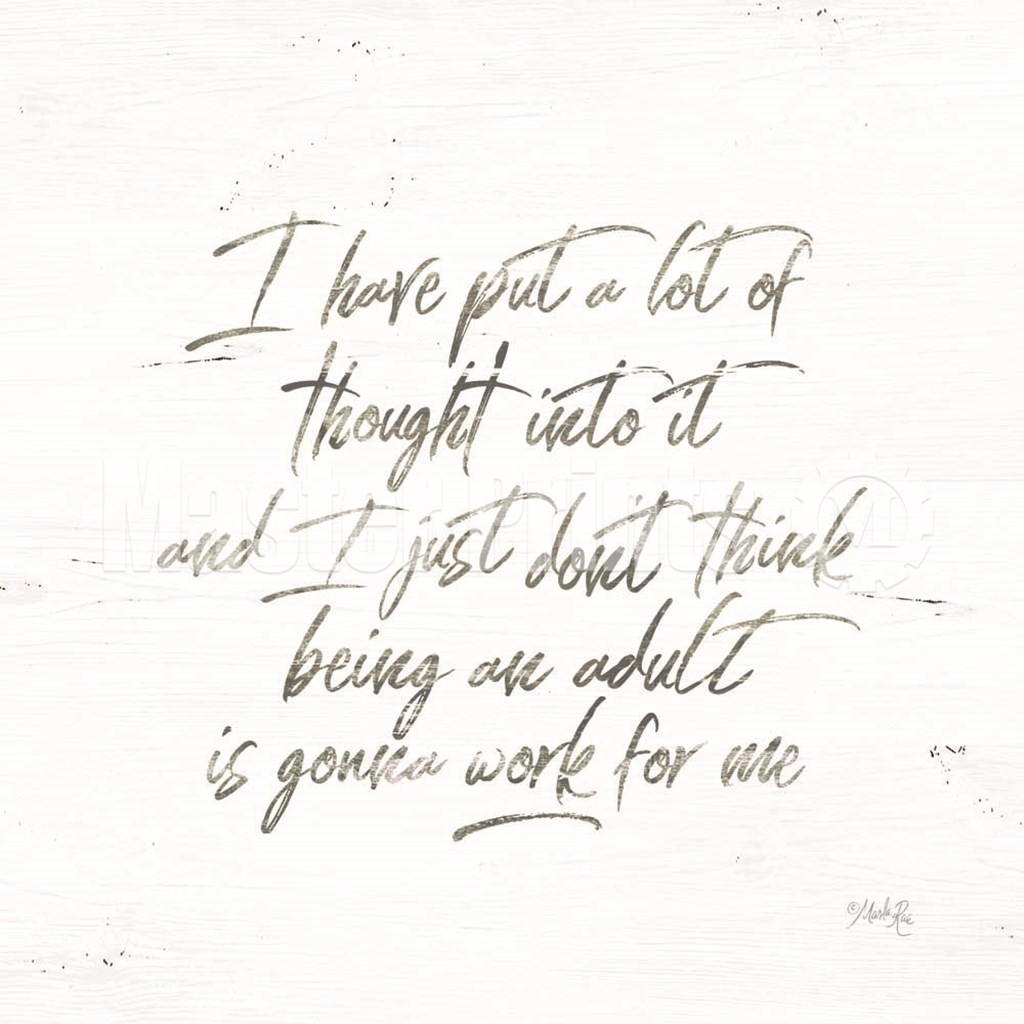 I have put a lot of
thought into it
and I just don't think
being an adult
is gonna work for me
©Marla Rae